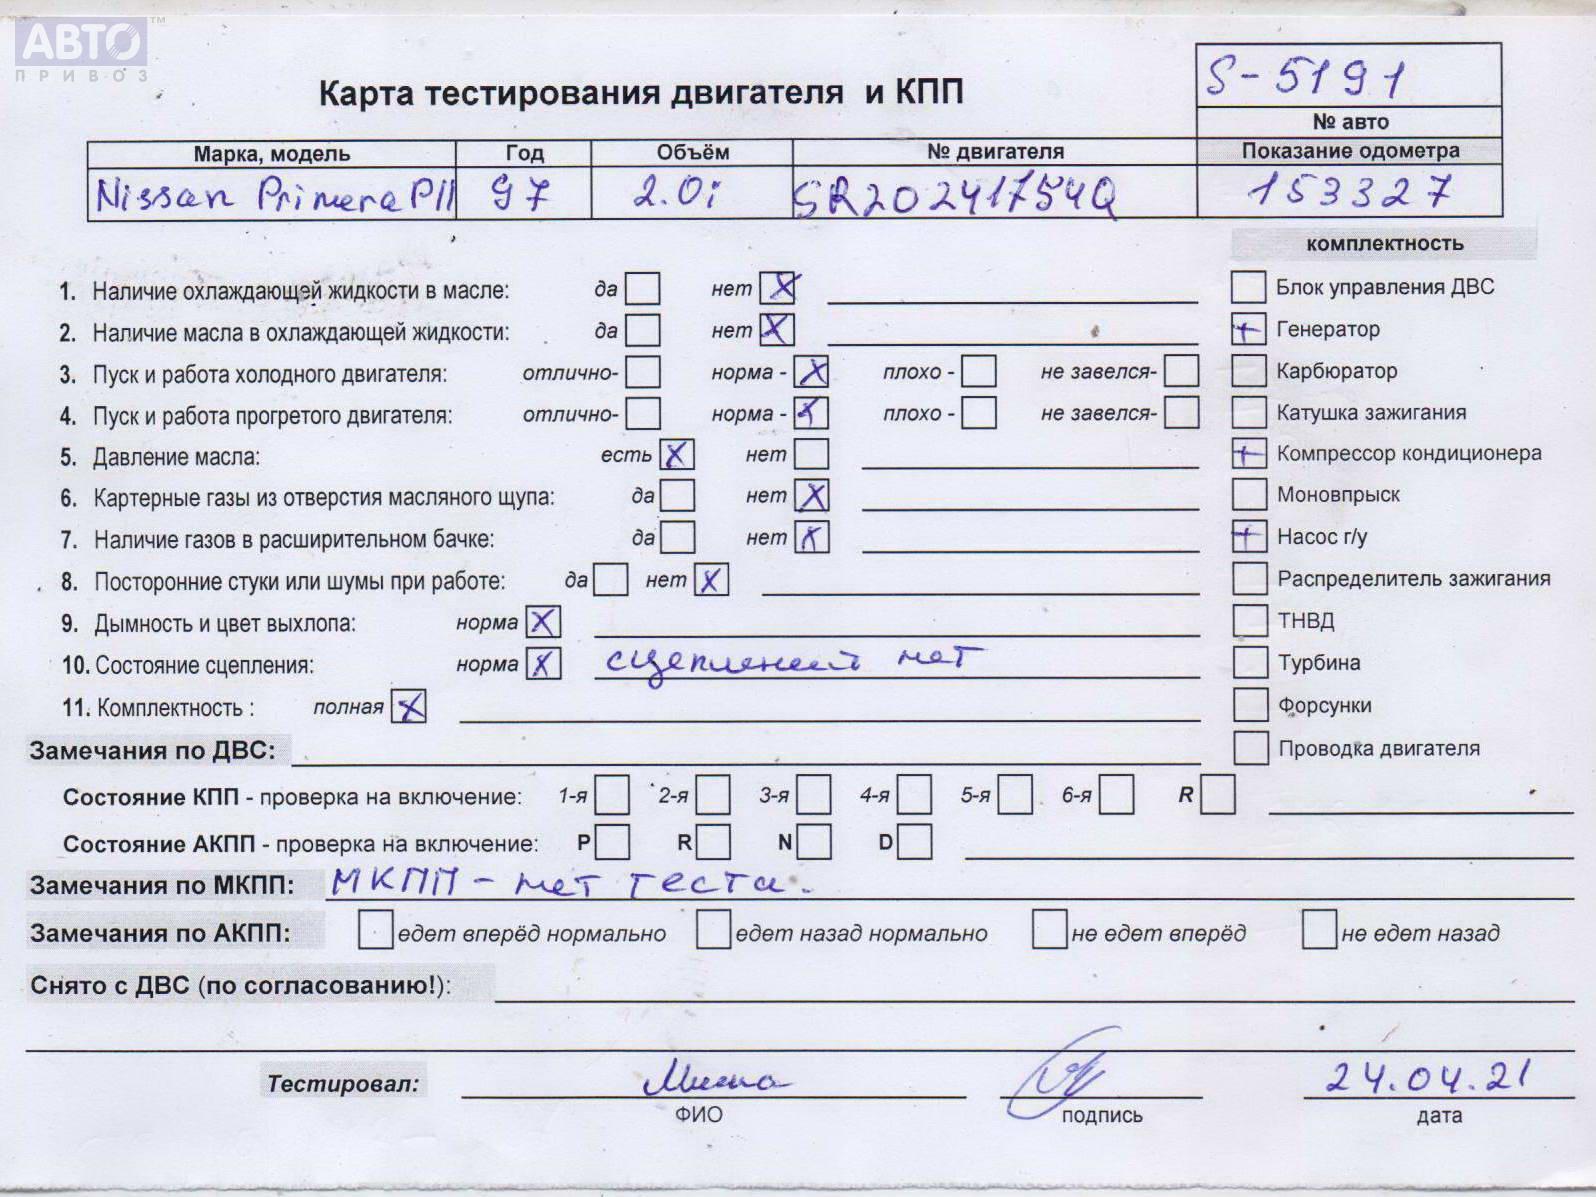 АВТО™
ПРИВОЗ
Карта тестирования двигателя и КПП
S-5191
№ авто
Марка, модель Год Объём № двигателя Показание одометра
Nissan Primera P11 97 2.0i SR20241754Q 153327
комплектность
1. Наличие охлаждающей жидкости в масле: да нет X
Блок управления ДВС
2. Наличие масла в охлаждающей жидкости: да нет X
+ Генератор
3. Пуск и работа холодного двигателя: отлично- норма - X плохо - не завелся-
Карбюратор
4. Пуск и работа прогретого двигателя: отлично- норма - X плохо - не завелся-
Катушка зажигания
5. Давление масла: есть X нет
+ Компрессор кондиционера
6. Картерные газы из отверстия масляного щупа: да нет X
Моновпрыск
7. Наличие газов в расширительном бачке: да нет X
+ Насос г/у
8. Посторонние стуки или шумы при работе: да нет X
Распределитель зажигания
9. Дымность и цвет выхлопа: норма X
ТНВД
10. Состояние сцепления: норма X сцеплений нет
Турбина
11. Комплектность : полная X
Форсунки
Замечания по ДВС:
Проводка двигателя
Состояние КПП - проверка на включение: 1-я 2-я 3-я 4-я 5-я 6-я R
Состояние АКПП - проверка на включение: P R N D
Замечания по МКПП: МКПП - нет теста.
Замечания по АКПП: едет вперёд нормально едет назад нормально не едет вперёд не едет назад
Снято с ДВС (по согласованию!):
Тестировал: Миша 24.04.21
ФИО подпись дата